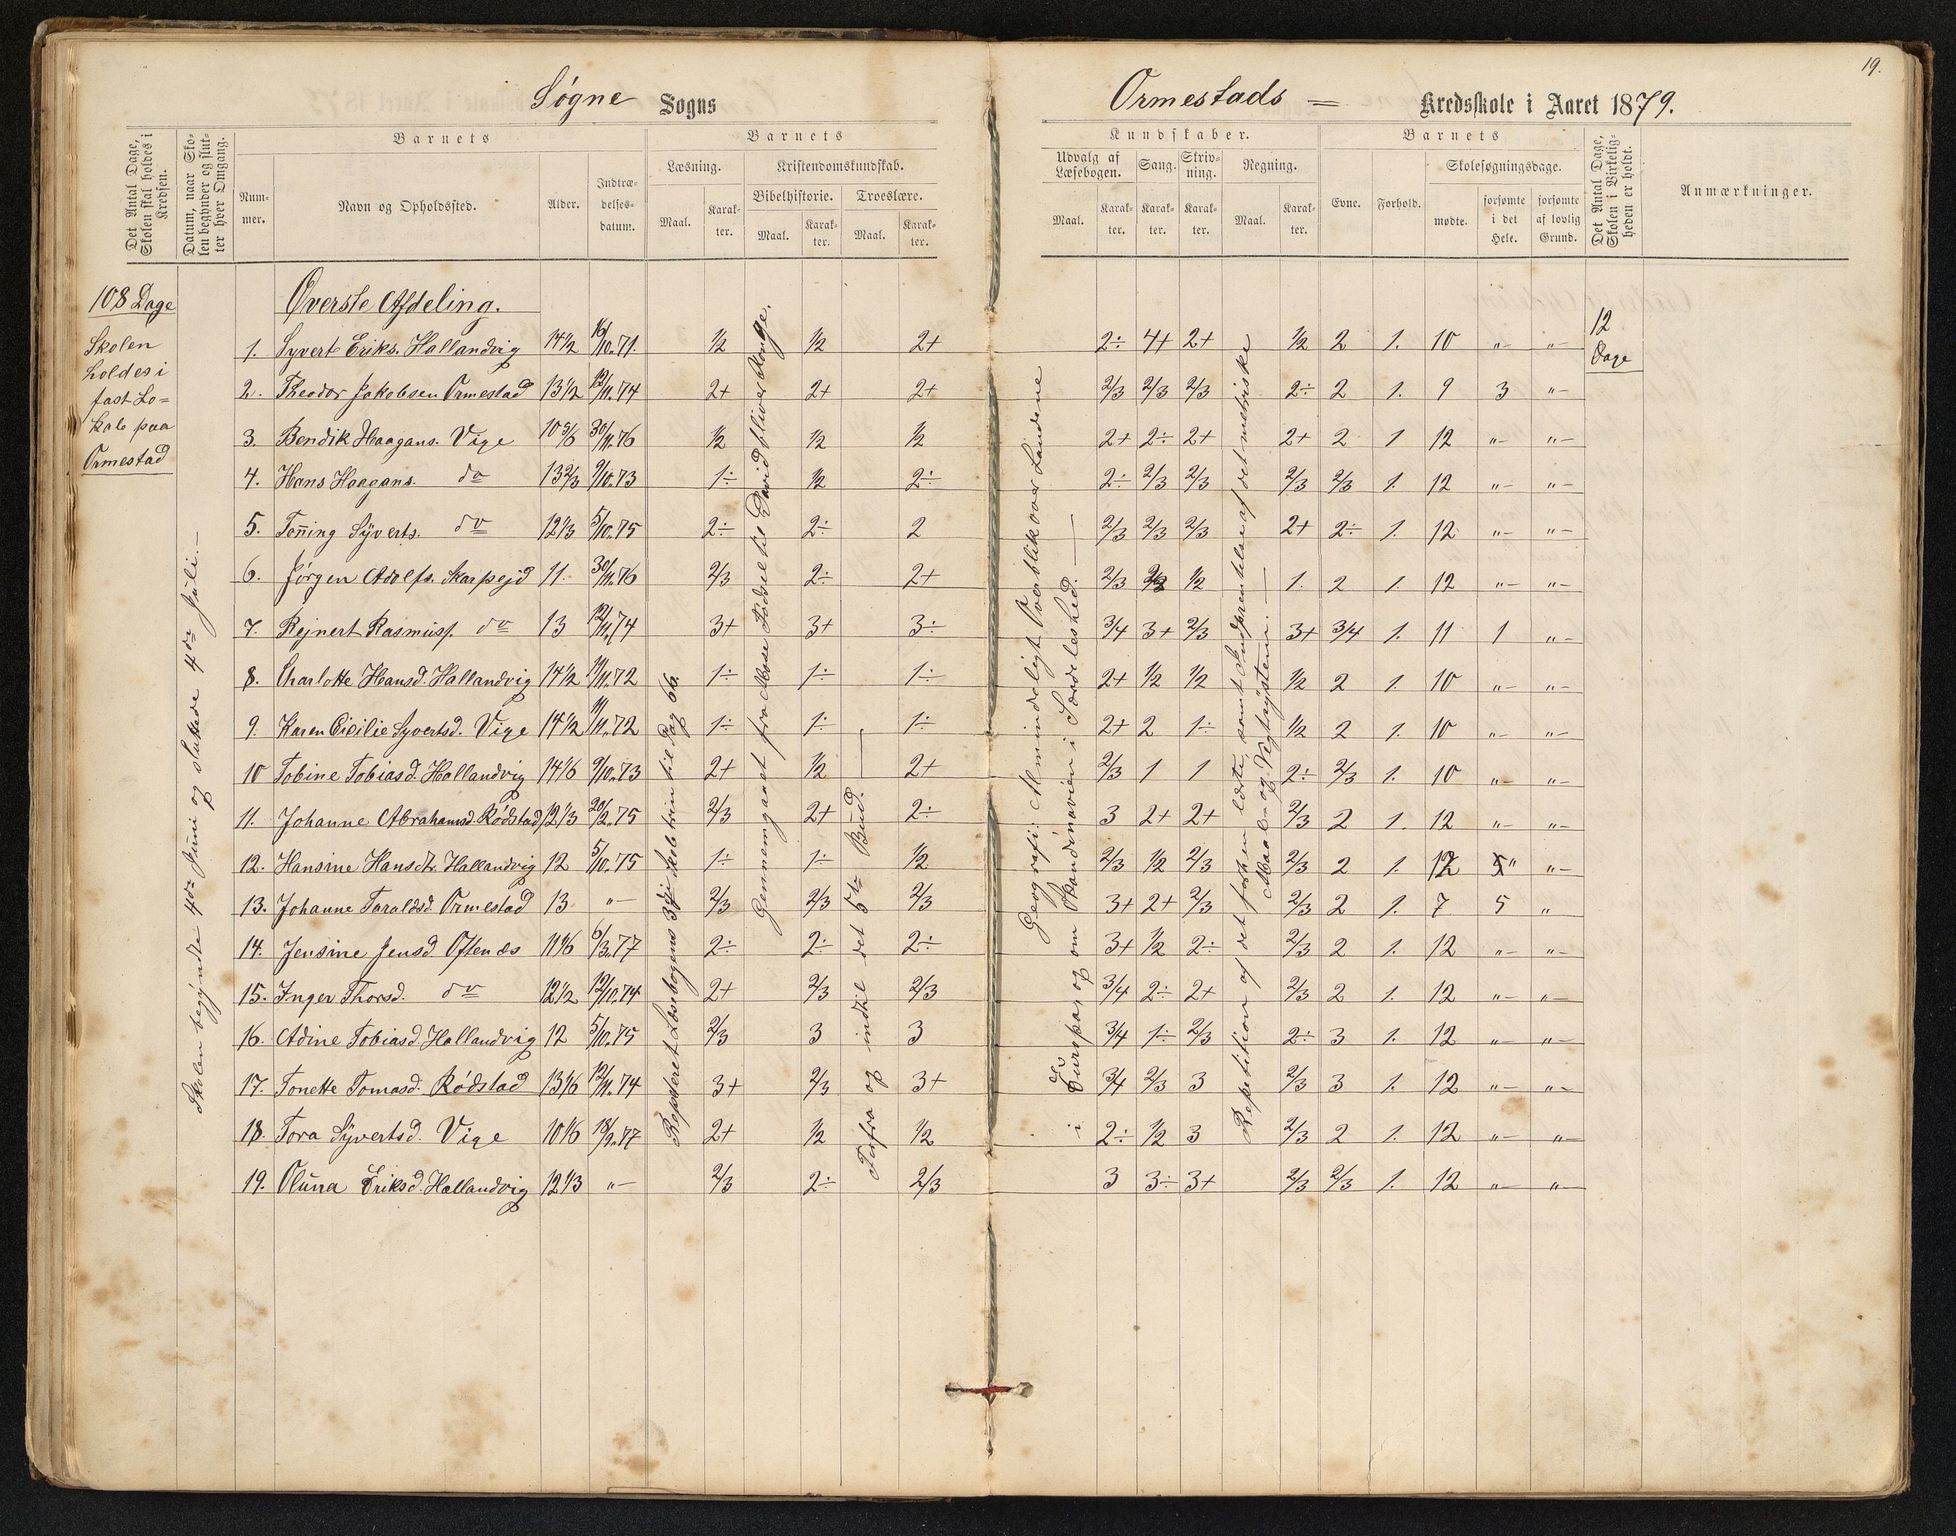 19.
Søgne Sogns Ormestads = Kredsskole i Aaret 1879.
Det Antal Dage, Skolen skal holdes i Kredsen.
Datum, naar Skolen begynder og slutter hver Omgang.
Barnets
Nummer.
Navn og Opholdssted.
Alder.
Indtrædelsesdatum.
Barnets
Læsning.
Maal.
Karakter.
Kristendomskundskab.
Bibelhistorie.
Maal.
Karakter.
Troeslære.
Maal.
Karakter.
Kundskaber.
Udvalg af Læsebogen.
Maal.
Karakter.
Sang.
Karakter.
Skrivning.
Karakter.
Regning.
Maal.
Karakter.
Barnets
Evne.
Forhold.
Skolesøgningsdage.
mødte.
forsømte i det Hele.
forsømte af lovlig Grund.
Det Antal Dage, Skolen i Virkeligheden er holdt.
Anmærkninger.
108 Dage
Skolen
holdes i
fast Lo=
kale paa
Ormestad
Skolen begyndte 4de Juni og sluttede 4de Juli. —
Øverste Afdeling.
1. Syvert Eriks. Hallandvig 14 1/2 16/10.71. 1/2 1/2 2+ 2÷ 4+ 2+ 1/2 2 1. 10 „— „—
2. Theodor Jakobsen Ormestad 13 1/2 12/11.74 2+ 2+ 2+ 2/3 2/3 2/3 2÷ 2 1. 9 3 „—
3. Bendik Haagans. Vige 10 5/6 30/11.76 1/2 1/2 1/2 2+ 2÷ 2+ 2+ 2 1 12 „— „—
4. Hans Haagans. do 13 2/3 9/10.73 1÷ 1/2 2÷ 2÷ 2/3 2/3 2/3 2/3 1. 12 „— „—
5. Tonning Syverts. do 12 1/3 5/10.75 2÷ 2÷ 2 2/3 2/3 2/3 2+ 2÷ 1. 12 „— „—
6. Jørgen Adolfs. Skarpejd 11. 30/11.76 2/3 2÷ 2+ 2/3 1/2 1. 2 1. 12 „— „—
7. Rejnert Rasmusf. do 13 12/11.74 3+ 3+ 3÷ 3/4 3+ 2/3 3+ 3/4 1. 11 1 „—
8. Charlotte Hansd. Hallandvig 14 1/2 11/11.72 1÷ 1÷ 1÷ 2+ 1/2 1/2 1/2 2 1. 10 „— „—
9. Karen Cicilie Syvertsd. Vige 14 1/2 11/11.72 1÷ 1÷ 1÷ 2+ 2 1÷ 1/2 2 1. 10 „— „—
10 Tobine Tobiasd. Hallandvig 14 1/6 9/10.73 2+ 1/2 2+ 2/3 1 1 2÷ 2/3 1. 10 „— „—
11. Johanne Abrahamsd. Rødstad 12 1/3 20/2.75 2/3 2+ 2÷ 3 2+ 2+ 2/3 2 1. 12 „— „—
12. Hansine Hansdtr. Hallandvig 12 5/10.75 1÷ 1÷ 1/2 2/3 1/2 2/3 2/3 2 1. 12 „ „—
13. Johanne Taraldsd. Ormestad 13 „— 2/3 2/3 2/3 3+ 2+ 2/3 2/3 2 1. 7 5 „
14. Jensine Jensd. Oftenæs 11 1/6 6/3.77 2÷ 2÷ 2÷ 3+ 1/2 2÷ 2/3 2 1. 12 „— „—
15. Inger Thorsd. do 12 1/2 12/10.74 2+ 2/3 2/3 3/4 2÷ 2+ 2/3 2 1. 12 „— „—
16. Adine Tobiasd. Hallandvig 12 5/10.75 2/3 3 3 3/4 1÷ 2/3 2÷ 3 1. 12 „— „—
17. Tonette Tomasd. Rødstad 13 1/6 12/11.74 3+ 2/3 3+ 3/4 2/3 3 2/3 3 1. 12 „— „—
18. Tora Syvertsd. Vige 10 1/6 18/9.77 2+ 1/2 1/2 2÷ 1/2 3 2/3 2 1. 12 „— „—
19. Oluna Eriksd. Hallandvig 12 1/3 „— 2/3 2÷ 2/3 3 3÷ 3+ 2/3 2/3 1. 12 „— „—
Repeteret Læsebogens 3die Skoletrin til Pag 66.
Gennemgaaet fra Mose Fødsel til David bliver Konge.
Forfra og indtil det 5te Bud. —
Geografi: Almindeligt Overblik over Landene
i Europa og om Skandinavien i Særdeleshed. —
Repetition af det forhen lærte, samt Indprentelse af det metriske
Maal- og Vegtsystem. —
12
Dage